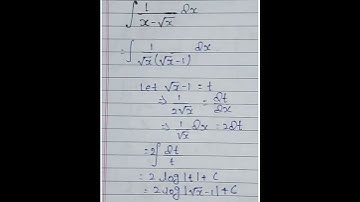 ∫ 1/(x-√x) dx
= ∫ 1/(√x(√x-1)) dx
Let √x-1 = t
⇒ 1/(2√x) = dt/dx
⇒ 1/√x dx = 2dt
= 2∫ dt/t
= 2 log|t| + C
= 2 log|√x-1| + C